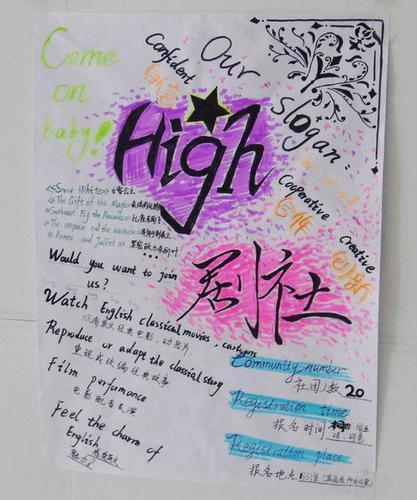 Come
on
baby!
Confident
自信
Our
slogan:
High
Cooperative
合作
Creative
创新
剧社
<<Snow White>> 白雪公主
<<The Gift of the Magi>>
<<Southeast Fly the Peacocks>> 孔雀东南飞
<<The emperor and the assassin>>
<<Romeo and Juliet>> 罗密欧与朱丽叶
......
Would you want to join
us?
Watch English classical movies, cartoons
观看英文经典电影、动画片
Reproduce or adapt the classial story
重现或改编经典故事
Film performance
电影配音表演
Feel the charm of
English
魅力
Community number
社团人数 20
Registration time
报名时间
Registration place
报名地点